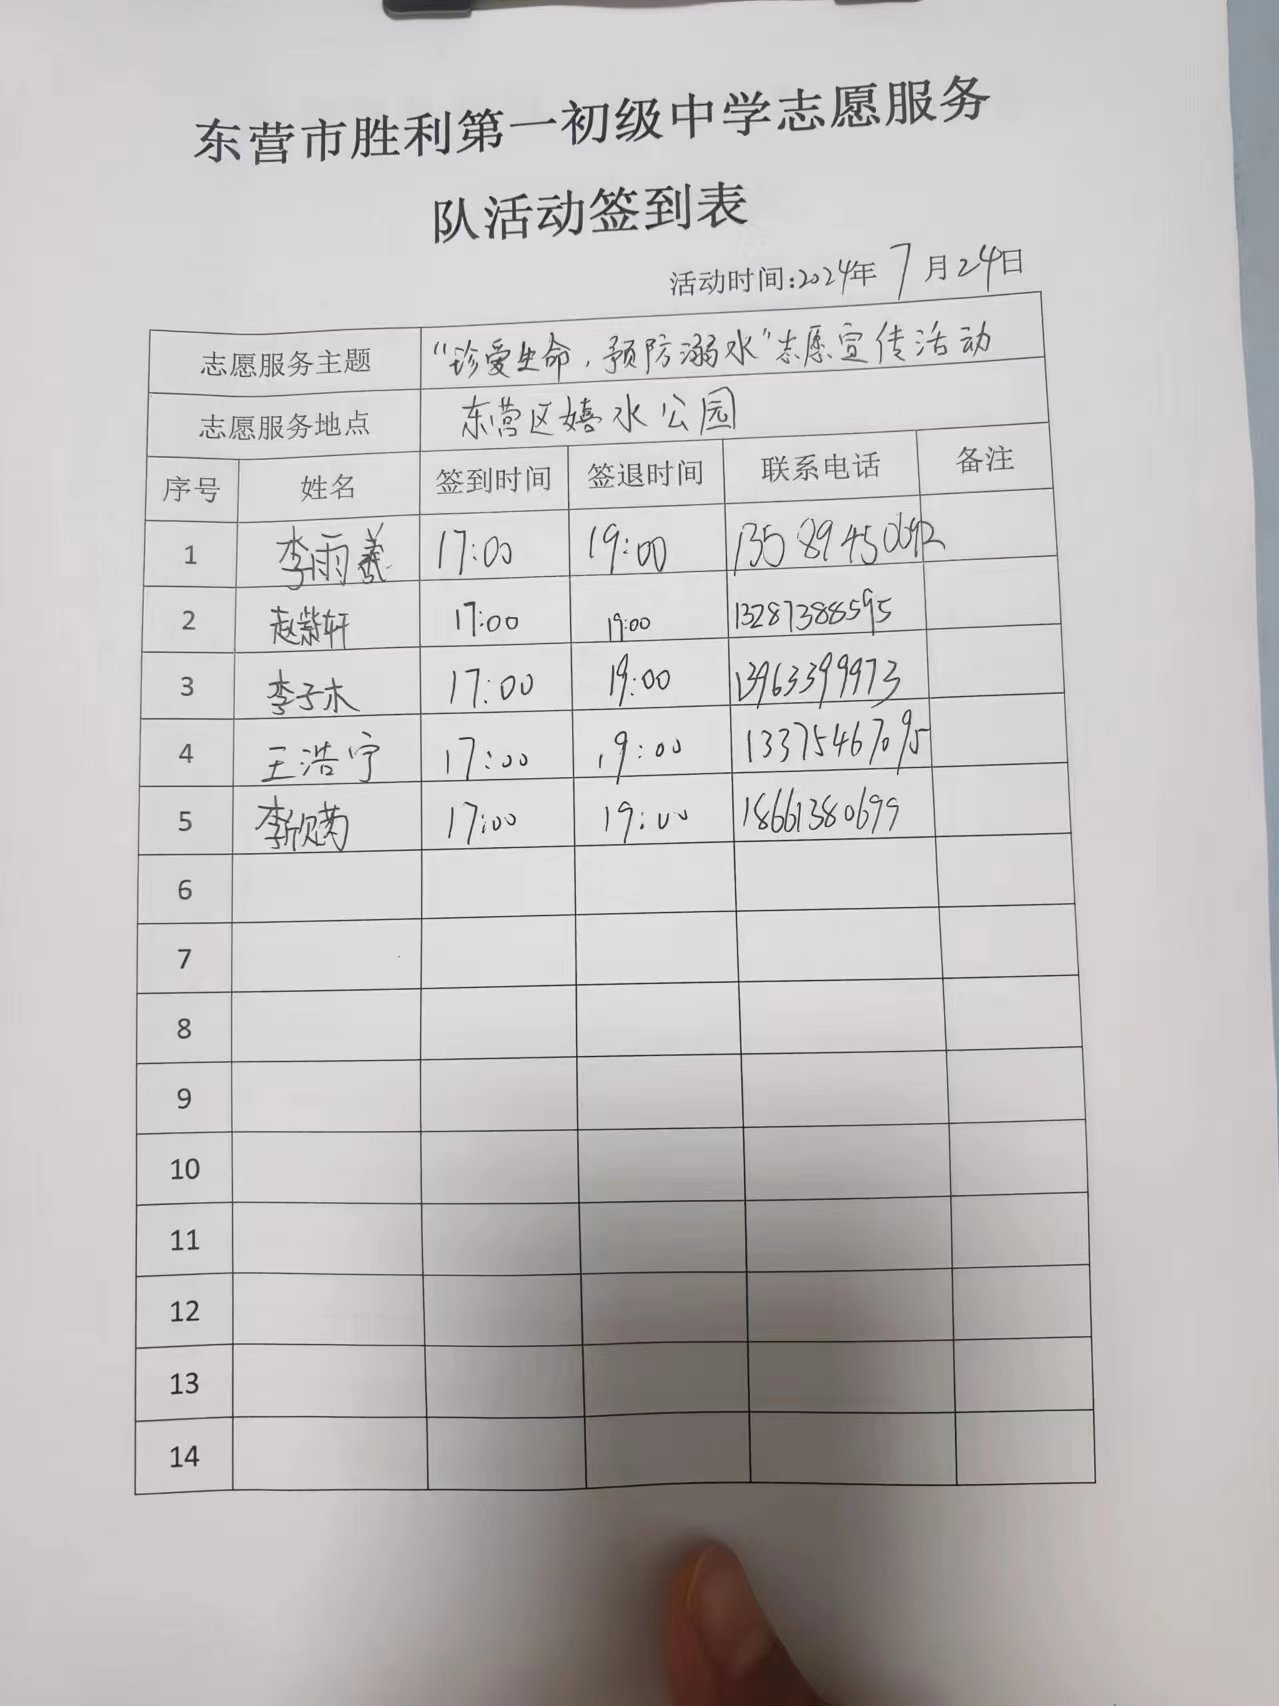 东营市胜利第一初级中学志愿服务
队活动签到表
活动时间:2024年 7月24日
志愿服务主题 “珍爱生命，预防溺水”志愿宣传活动
志愿服务地点 东营区嬉水公园
序号 姓名 签到时间 签退时间 联系电话 备注
1 李雨羲 17:00 19:00
2 赵紫轩 17:00 19:00 13287388595
3 李子木 17:00 19:00 13963399973
4 王浩宇 17:00 19:00 13375467095
5 17:00 19:00 18661380699
6
7
8
9
10
11
12
13
14